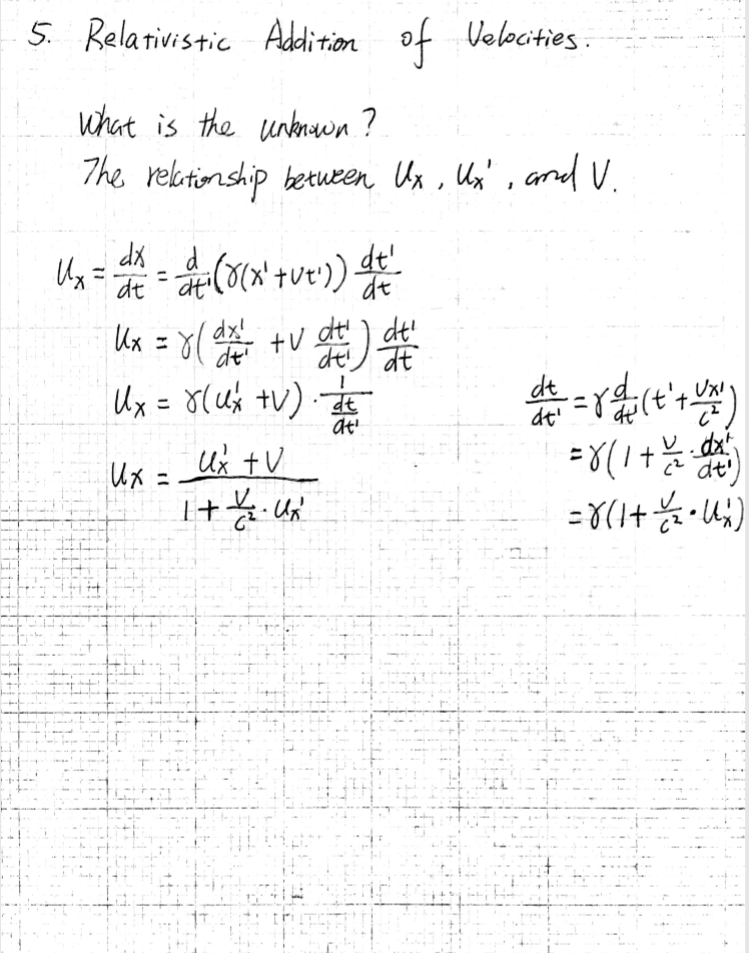 5. Relativistic Addition of Velocities.
What is the unknown?
The relationship between Ux, Ux', and V.
Ux = dx/dt = d/dt'(γ(x'+Vt')) dt'/dt
Ux = γ(dx'/dt' + V dt'/dt') dt'/dt
Ux = γ(Ux' + V) · 1/(dt/dt')
Ux = (Ux' + V)/(1 + V/c² · Ux')
dt/dt' = γ d/dt'(t' + Vx'/c²)
= γ(1 + V/c² · dx'/dt')
= γ(1 + V/c² · Ux')